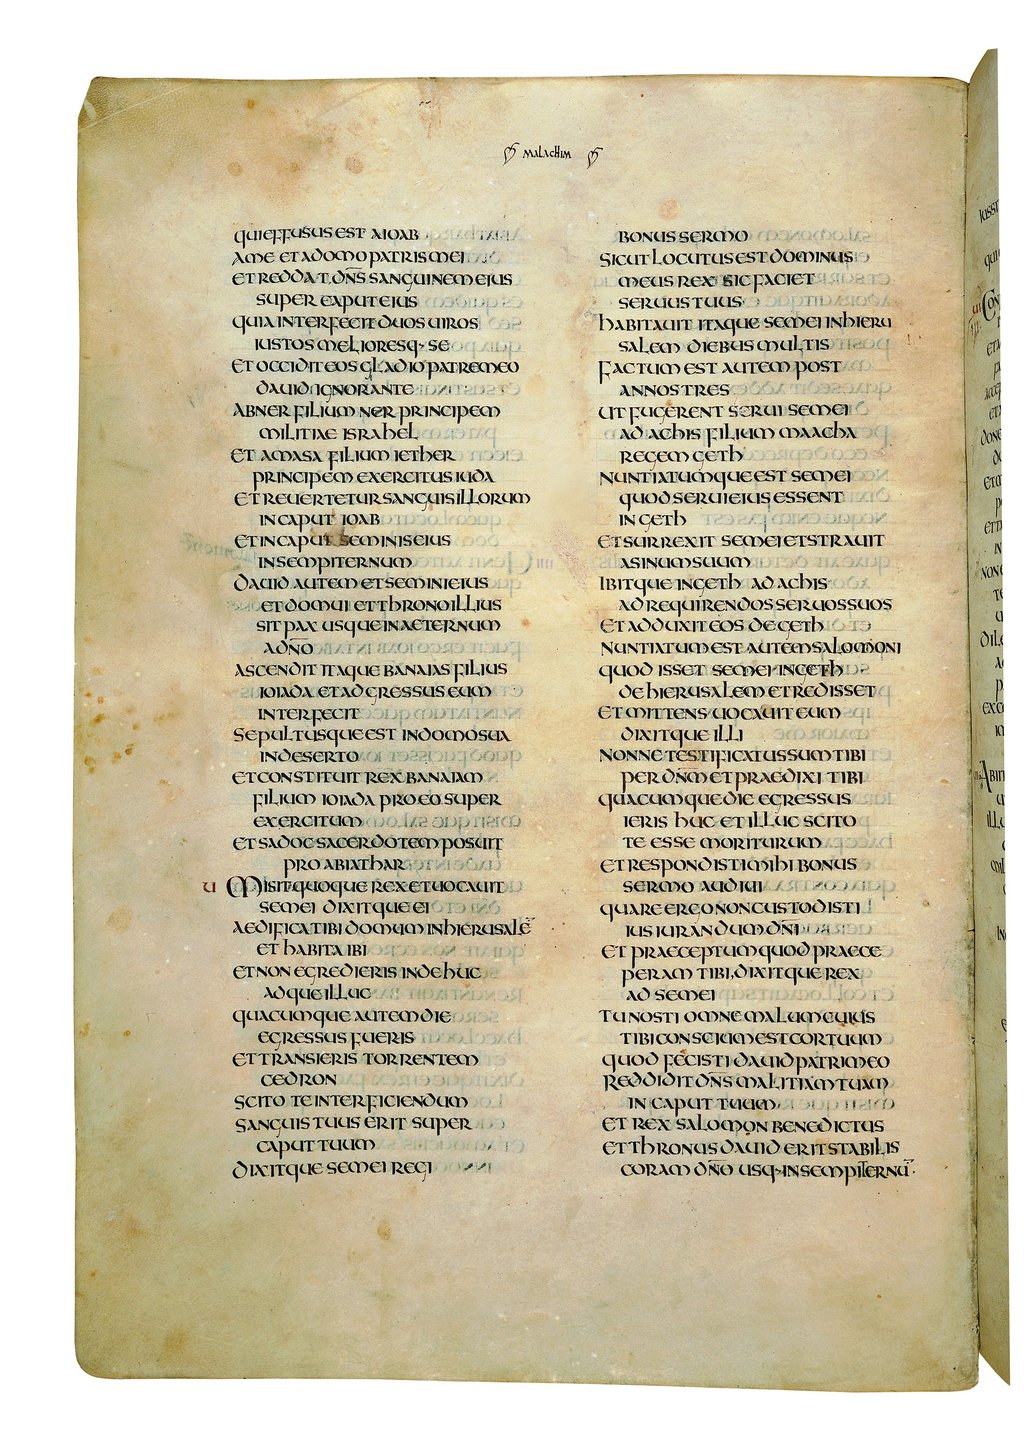 MALACHIM
QUI EFFUSUS EST A IOAB
A ME ET A DOMO PATRIS MEI
ET REDDAT DNS SANGUINEM EIUS
SUPER CAPUT EIUS
QUIA INTERFECIT DUOS UIROS
IUSTOS MELIORESQ· SE
ET OCCIDIT EOS GLADIO PATRE MEO
DAUID IGNORANTE
ABNER FILIUM NER PRINCIPEM
MILITIAE ISRAHEL
ET AMASA FILIUM IETHER
PRINCIPEM EXERCITUS IUDA
ET REUERTETUR SANGUIS ILLORUM
IN CAPUT IOAB
ET IN CAPUT SEMINIS EIUS
IN SEMPITERNUM
DAUID AUTEM ET SEMINI EIUS
ET DOMUI ET THRONO ILLIUS
SIT PAX USQUE IN AETERNUM
A DNO
ASCENDIT ITAQUE BANAIAS FILIUS
IOIADA ET ADGRESSUS EUM
INTERFECIT
SEPULTUSQUE EST IN DOMO SUA
IN DESERTO
ET CONSTITUIT REX BANAIAM
FILIUM IOIADA PRO EO SUPER
EXERCITUM
ET SADOC SACERDOTEM POSUIT
PRO ABIATHAR
U MISIT QUOQUE REX ET UOCAUIT
SEMEI DIXITQUE EI
AEDIFICA TIBI DOMUM IN HIERUSALE
ET HABITA IBI
ET NON EGREDIERIS INDE HUC
ADQUE ILLUC
QUACUMQUE AUTEM DIE
EGRESSUS FUERIS
ET TRANSIERIS TORRENTEM
CEDRON
SCITO TE INTERFICIENDUM
SANGUIS TUUS ERIT SUPER
CAPUT TUUM
DIXITQUE SEMEI REGI
BONUS SERMO
SICUT LOCUTUS EST DOMINUS
MEUS REX SIC FACIET
SERUUS TUUS
HABITAUIT ITAQUE SEMEI IN HIERU
SALEM DIEBUS MULTIS
FACTUM EST AUTEM POST
ANNOS TRES
UT FUGERENT SERUI SEMEI
AD ACHIS FILIUM MAACHA
REGEM GETH
NUNTIATUMQUE EST SEMEI
QUOD SERUI EIUS ESSENT
IN GETH
ET SURREXIT SEMEI ET STRAUIT
ASINUM SUUM
IBITQUE IN GETH AD ACHIS
AD REQUIRENDOS SERUOS SUOS
ET ADDUXIT EOS DE GETH
NUNTIATUM EST AUTEM SALOMONI
QUOD ISSET SEMEI IN GETH
DE HIERUSALEM ET REDISSET
ET MITTENS UOCAUIT EUM
DIXITQUE ILLI
NONNE TESTIFICATUS SUM TIBI
PER DNM ET PRAEDIXI TIBI
QUACUMQUE DIE EGRESSUS
IERIS HUC ET ILLUC SCITO
TE ESSE MORITURUM
ET RESPONDISTI MIHI BONUS
SERMO AUDIUI
QUARE ERGO NON CUSTODISTI
IUSIURANDUM DNI
ET PRAECEPTUM QUOD PRAECE
PERAM TIBI, DIXITQUE REX
AD SEMEI
TU NOSTI OMNE MALUM CUIUS
TIBI CONSCIUM EST COR TUUM
QUOD FECISTI DAUID PATRI MEO
REDDIDIT DNS MALITIAM TUAM
IN CAPUT TUUM
ET REX SALOMON BENEDICTUS
ET THRONUS DAUID ERIT STABILIS
CORAM DNO USQ· IN SEMPITERNU